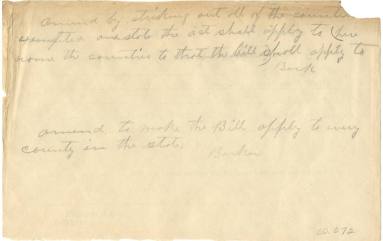 amend by striking out all of the counties
exempted and state the act shall apply to (here
name the counties to that the bill shall apply to
Buck
amend to make the Bill apply to every
county in the state.
Barker